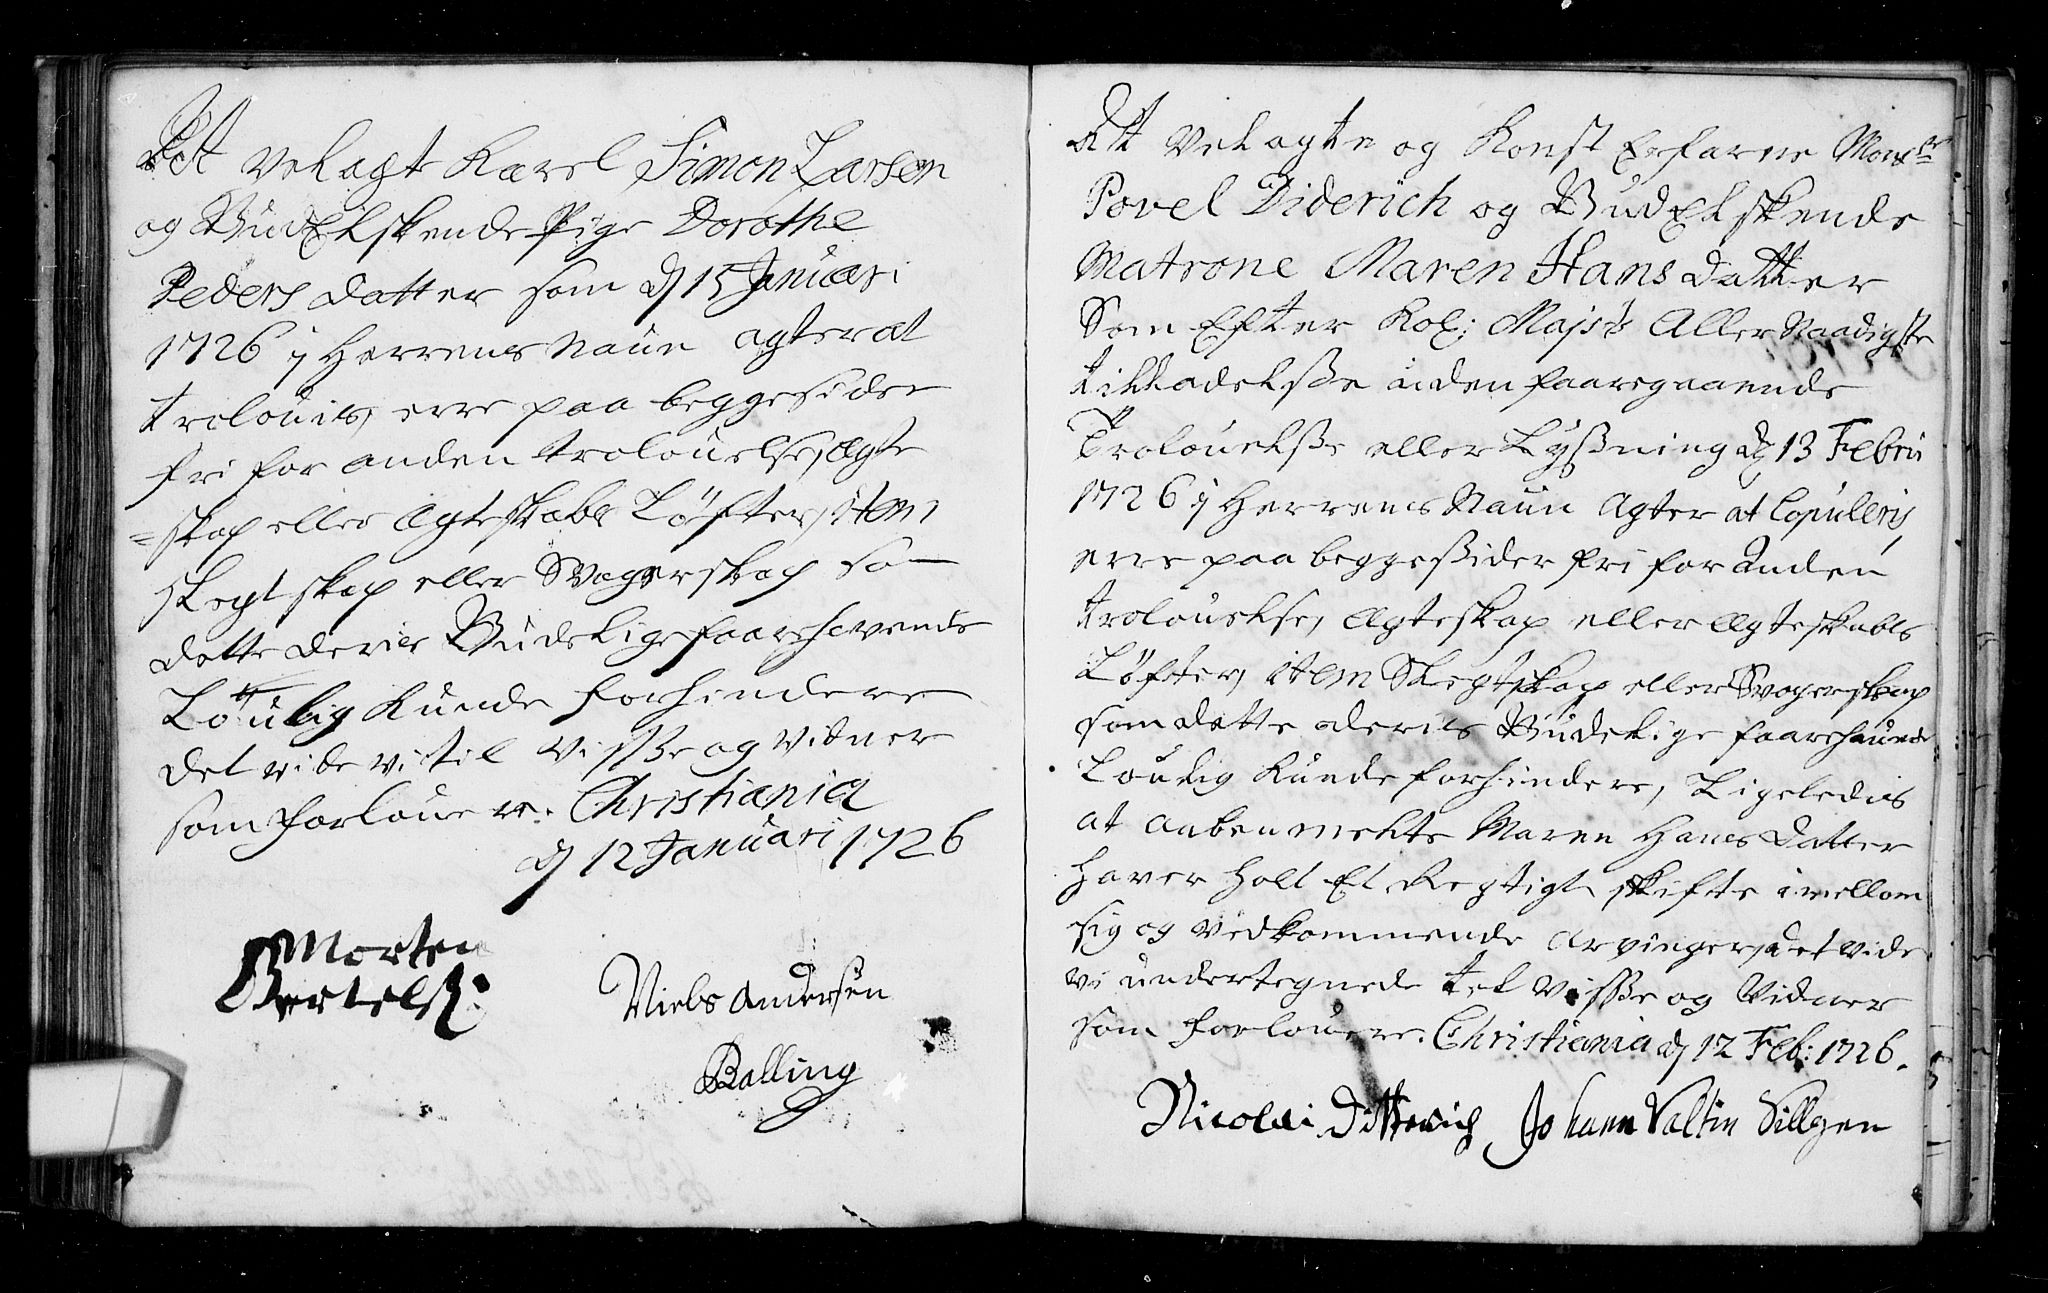 At Velagt Karel Simon Larsen
og GudElskende Pige Dorothe
Peders datter som d 15 Januari
1726 i Herrens Naun agter at
trolouis, erre paa beggesider
fri for anden trolouelse, Ægte
=skap eller Ægteskabs Løfter, item
Slegtskap eller Svogerskap som
dette deris Gudelige faarehavende
Loulig kunde forhindere
det vide vi til visse og vidner
som forlouere. Christiania
d 12 Januari 1726
Morten
Bertels:
Niels Andersen
Balling
At Velagte og Konst Erfarne Mons:r
Povel Diderich og GudElskende
Matrone Maren Hans datter
Som Efter Kol: Maj:s Aller Naadigste
tilladelsße uden faaregaaende
Trolouelsße eller Lyßning d 13 Febru
1726 i Herrens Naun Agter at Copuleris,
erre paa beggeßider fri for Anden
trolouelse, Ægteskap eller Ægteskabs
Løfter, item Slegtskap eller Svogerskap
som dette deris Gudelige faarehauende
Loulig kunde forhindere, Ligeledis
at anbenmelte Maren Hans Datter
haver holt Et Regtigt skifte imellom
sig og vedkommende arvinger, det vide
vi undertegnede til visße og Vidner
som forlouere. Christiania d 12 Feb: 1726.
Nicolai Ditterich Johann Valtin Sillgen